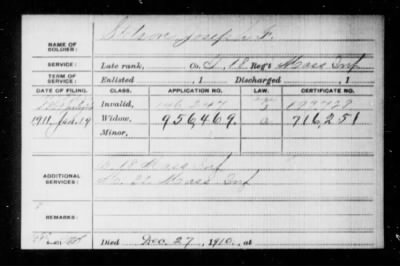 NAME OF SOLDIER: Stetson, Joseph F.
SERVICE: Late rank, Co. D, 18 Reg't Mass Inf
TERM OF SERVICE: Enlisted , 1 Discharged , 1
DATE OF FILING. CLASS. APPLICATION NO. LAW. CERTIFICATE NO.
Invalid,
1911, Jan. 19 Widow, 956,469. a 716,251
Minor,
ADDITIONAL SERVICES: 18 Mass Inf
32 Mass Inf
REMARKS:
Died Dec. 27, 1910, at